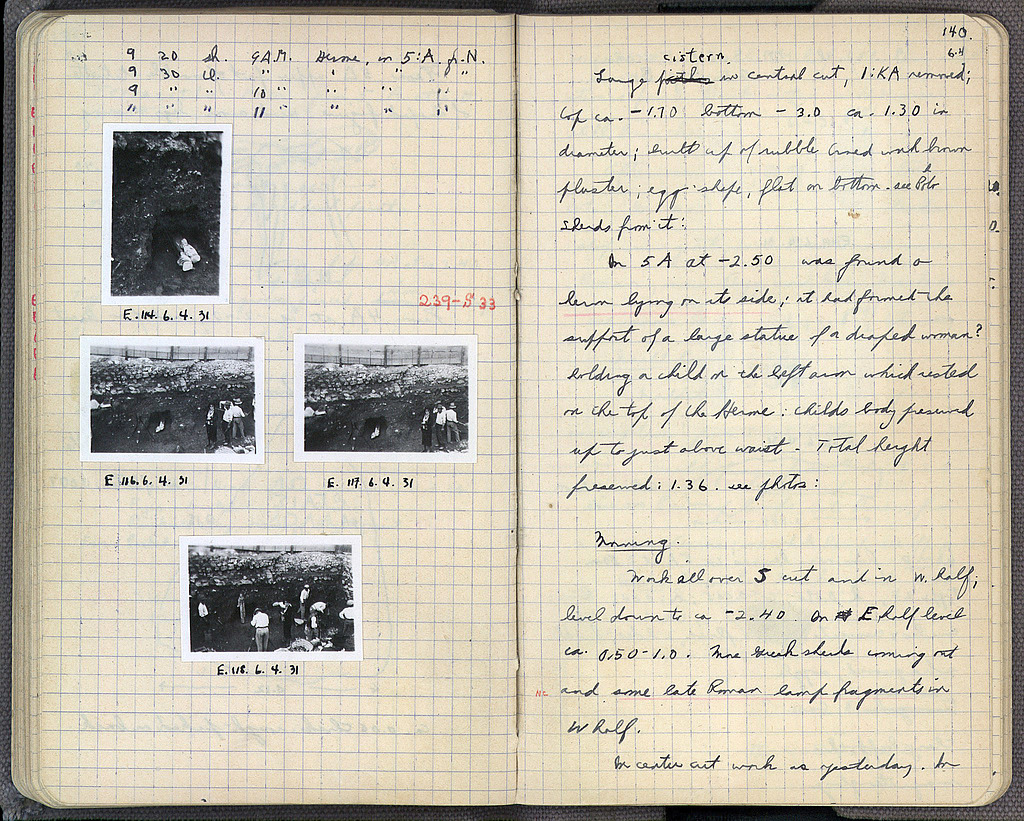 9 20 sh. 9 A.M. Herme, in 5:A. fr. N.
9 30 cl. " " " " "
9 " " 10 " " " "
" " " 11 " " " "
E. 114. 6. 4. 31
239-S 33
E 116. 6. 4. 31
E. 117. 6. 4. 31
E. 118. 6. 4. 31
140.
6.4
cistern
Large in central cut, 1:KA removed;
top ca. -1.70 bottom -3.0 ca. 1.30 in
diameter; built up of rubble lined with brown
plaster; egg-shape, flat on bottom. see Photo
sherds from it:
In 5 A at -2.50 was found a
herm lying on its side; it had formed the
support of a large statue of a draped woman?
holding a child on the left arm which rested
on the top of the Herme: childs body preserved
up to just above waist - Total height
preserved: 1.36. see photos:
Morning.
Work all over 5 cut and in W. half;
level down to ca -2.40. In E half level
ca. 0.50-1.0. More Greek sherds coming out
NC and some late Roman lamp fragments in
W half.
In center cut work as yesterday. In